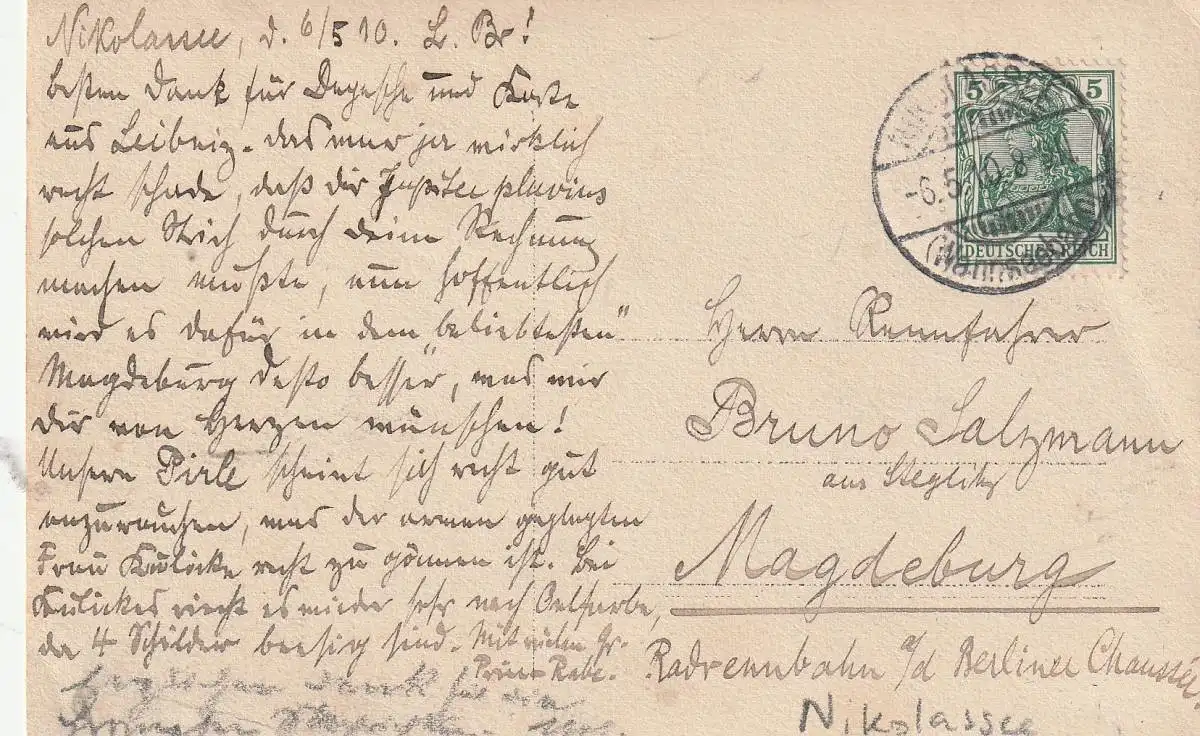 Nikolassee, d. 6/5 10. L. Br!
besten Dank für Depesche und Karte
aus Leibniz. das war ja wirklich
recht schade, daß dir Jupiter pluvius
solchen Strich durch deine Rechnung
machen mußte, nun hoffentlich
wird es dafür in dem „beliebtesten"
Magdeburg desto besser, was wir
dir von Herzen wünschen!
Unsere Pirle scheint sich recht gut
was der armen geplagten
Frau Kulicke recht zu gönnen ist. Bei
Kulickes riecht es wieder sehr nach Oelfarbe,
da 4 Schilder sind. Mit vielen Gr.
Rabe.
herzlichen Dank für die
5 5
DEUTSCHES REICH
-6.5.10.8-
(Wannseebahn)
Herrn Rennfahrer
Bruno Salzmann
aus Steglitz
Magdeburg
Radrennbahn a/d Berliner Chaussee.
Nikolassee